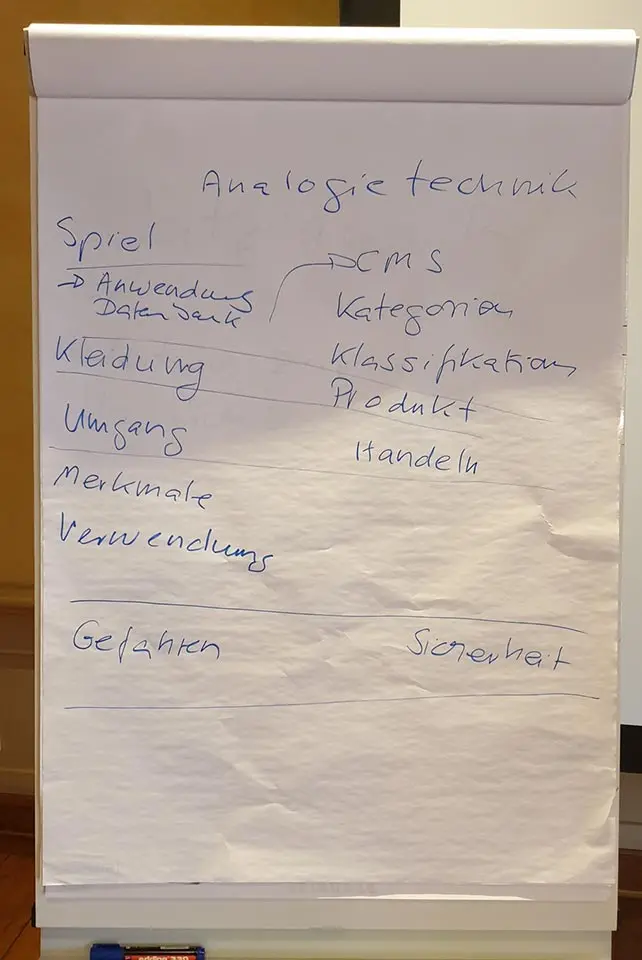 Analogietechnik
Spiel
→ Anwendung
Datenbank
→ CMS
Kategorien
Kleidung
Klassifikation
Produkt
Umgang
Handeln
Merkmale
Verwendung
Gefahren
Sicherheit
edding 330